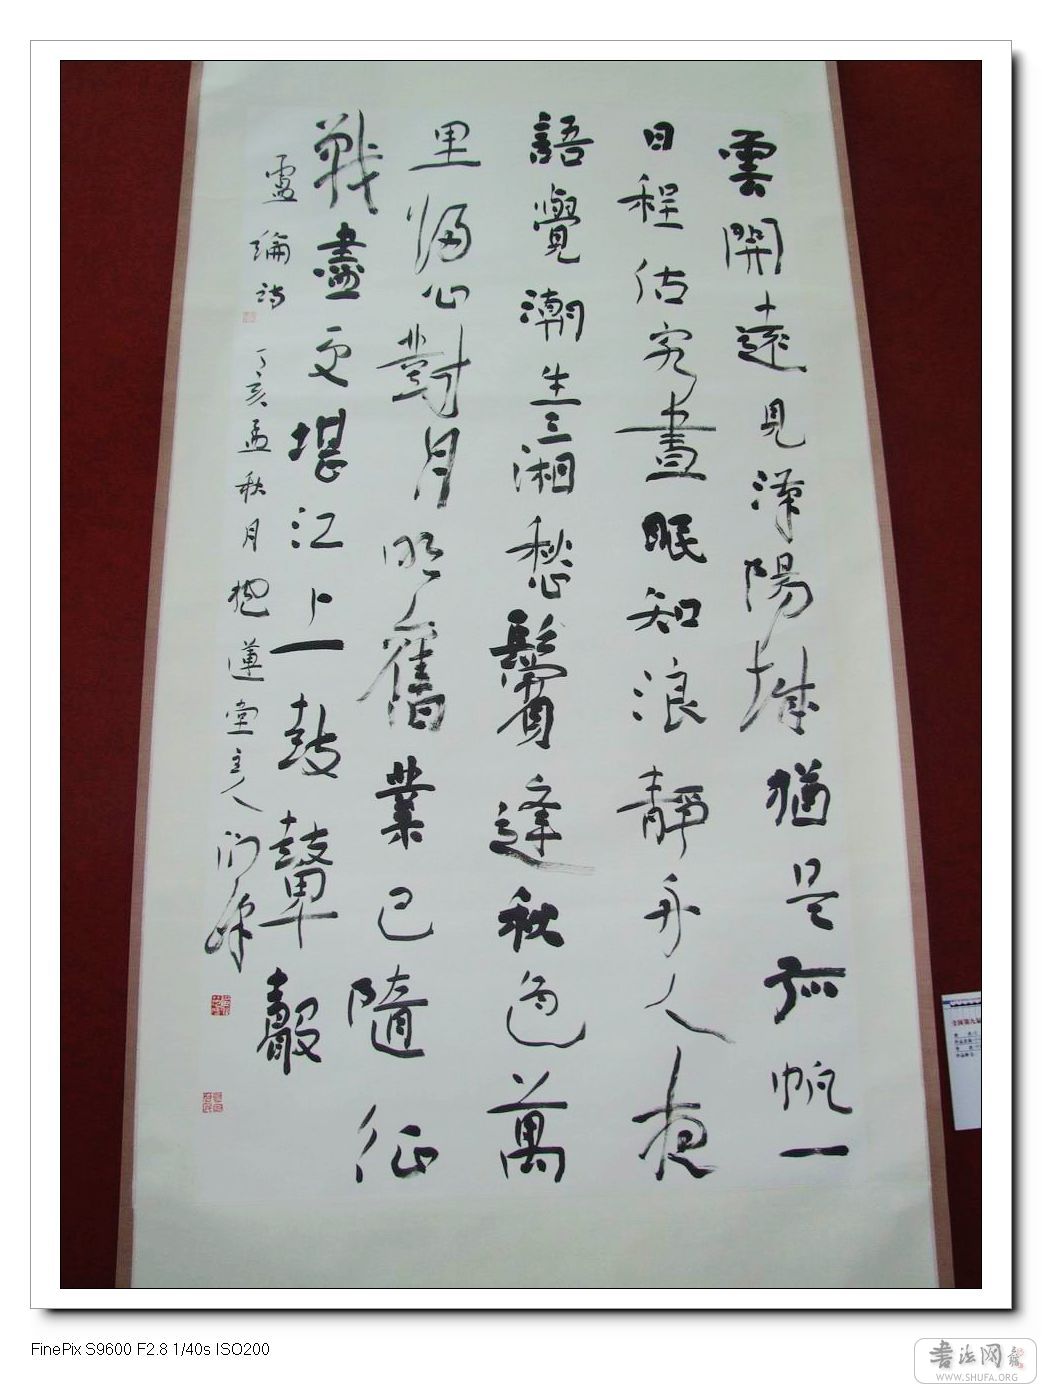 雲開遠見漢陽城猶是孤帆一
日程估客晝眠知浪靜舟人夜
語覺潮生三湘愁鬢逢秋色萬
里歸心對月明舊業已隨征
戰盡更堪江上鼓鼙聲
盧綸詩
丁亥孟秋月抱蓮堂主人
FinePix S9600 F2.8 1/40s ISO200
書法网
WWW.SHUFA.ORG